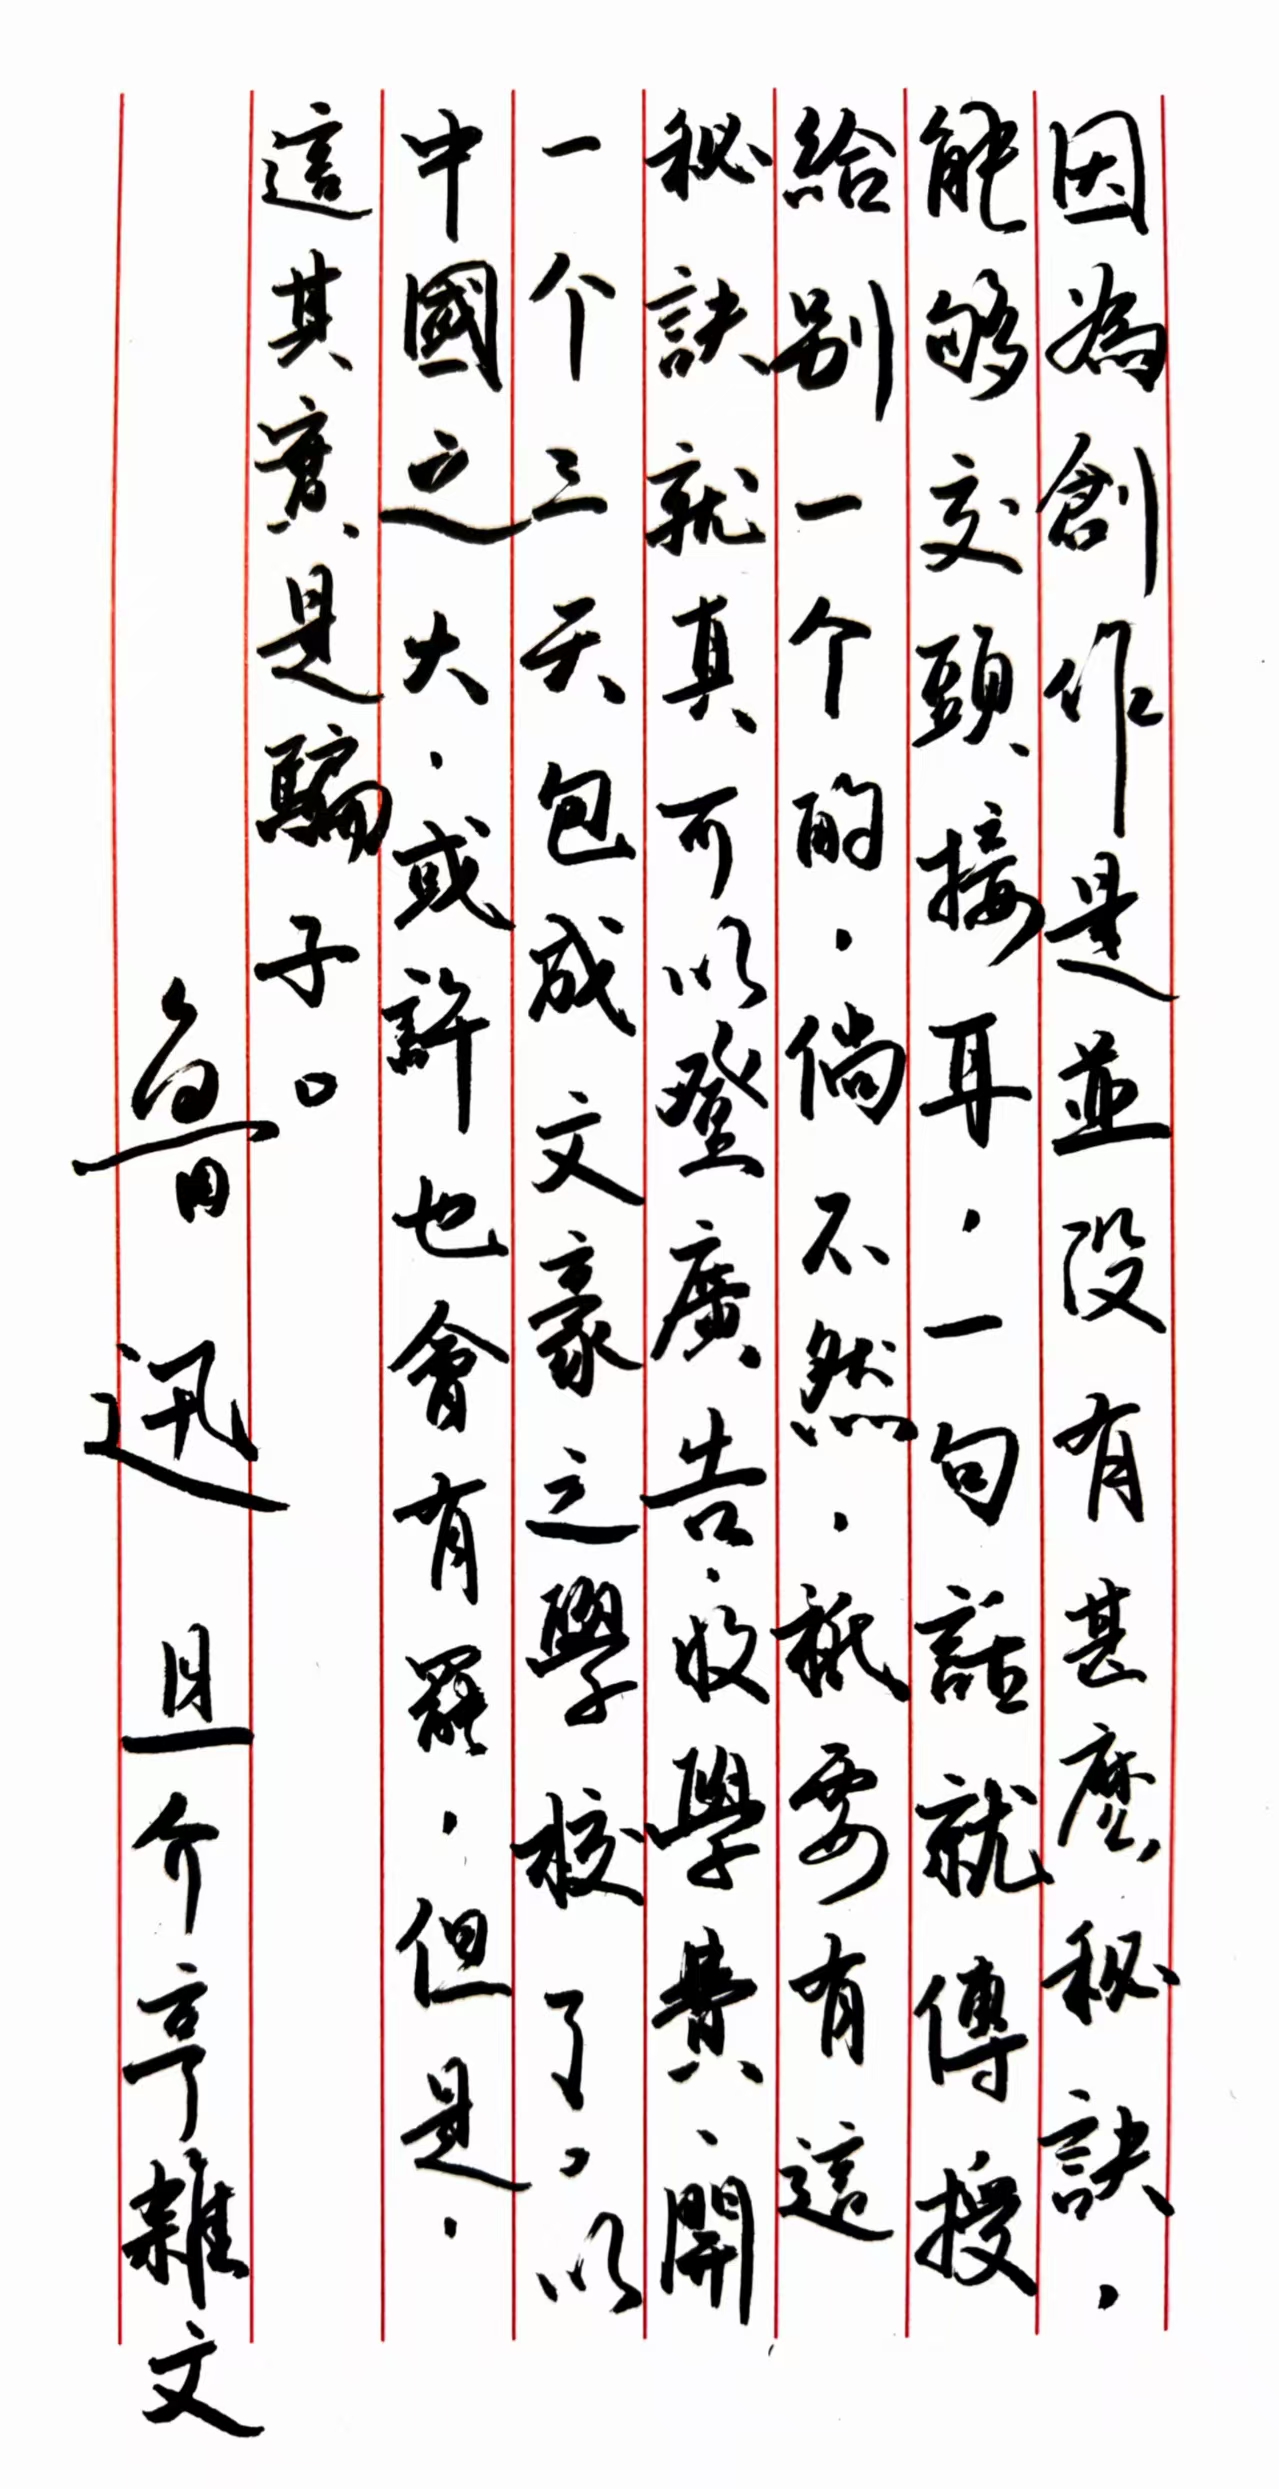 因為創作是並没有甚麽秘訣，
能够交頭接耳，一句話就傳授
給别一个的，倘不然，祇要有這
秘訣就真可以登廣告，收學費，開
一个三天包成文豪之學校了，以
中國之大，或許也會有罷，但是，
這其實是騙子。
魯迅 且介亭雜文